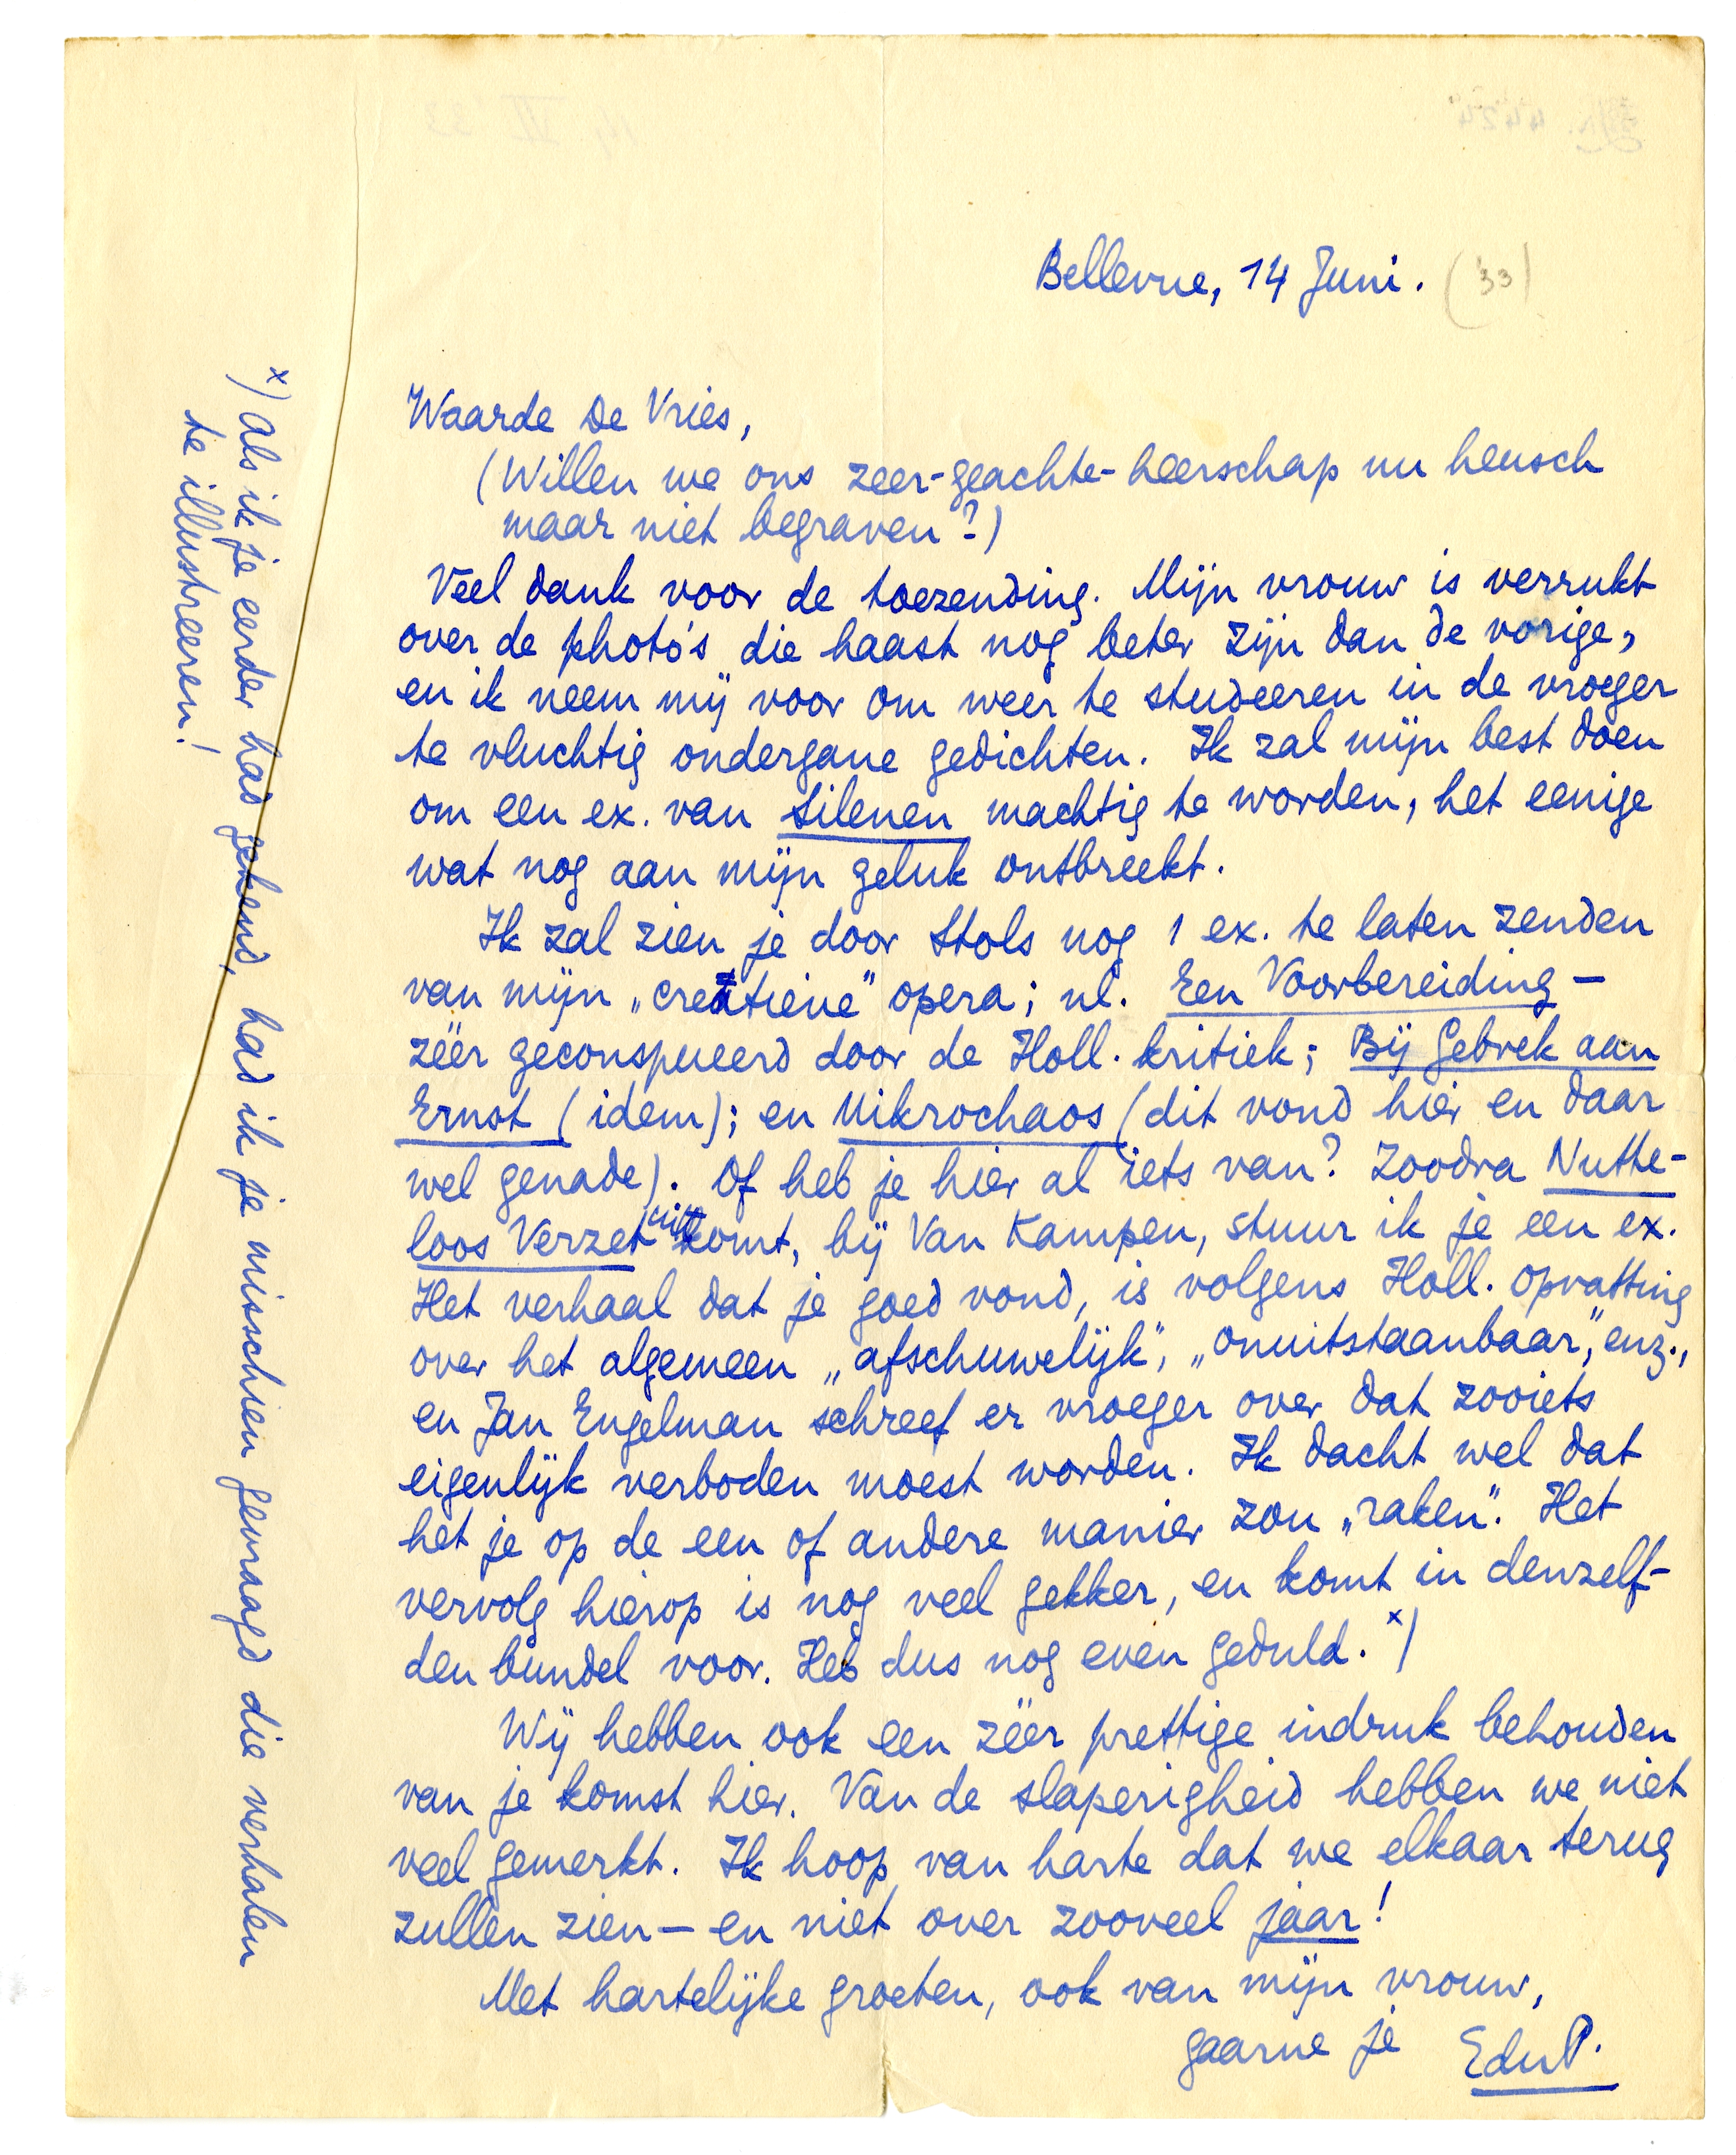 Bellevue, 14 Juni. ('33)
Waarde De Vries,
(Willen we ons zeer-geachte-heerschap nu heusch
maar niet begraven?)
Veel dank voor de toezending. Mijn vrouw is verrukt
over de photo's die haast nog beter zijn dan de vorige,
en ik neem mij voor om weer te studeeren in de vroeger
te vluchtig ondergane gedichten. Ik zal mijn best doen
om een ex. van Silenen machtig te worden, het eenige
wat nog aan mijn geluk ontbreekt.
Ik zal zien je door Stols nog 1 ex. te laten zenden
van mijn „creatieve” opera; nl. Een Voorbereiding —
zéér geconspueerd door de Holl. kritiek; Bij Gebrek aan
Ernst (idem); en Mikrochaos (dit vond hier en daar
wel genade). Of heb je hier al iets van? Zoodra Nutte-
loos Verzet uitkomt, bij Van Kampen, stuur ik je een ex.
Het verhaal dat je goed vond, is volgens Holl. opvatting
over het algemeen „afschuwelijk”, „onuitstaanbaar”, enz.,
en Jan Engelman schreef er vroeger over dat zooiets
eigenlijk verboden moest worden. Ik dacht wel dat
het je op de een of andere manier zou „raken”. Het
vervolg hierop is nog veel gekker, en komt in denzelf-
den bundel voor. Heb dus nog even geduld. x)
Wij hebben ook een zéér prettige indruk behouden
van je komst hier. Van de slaperigheid hebben we niet
veel gemerkt. Ik hoop van harte dat we elkaar terug
zullen zien — en niet over zooveel jaar!
Met hartelijke groeten, ook van mijn vrouw,
gaarne je EduP.
x) als ik je eerder had gekend, had ik je misschien gevraagd die verhalen
te illustreeren!